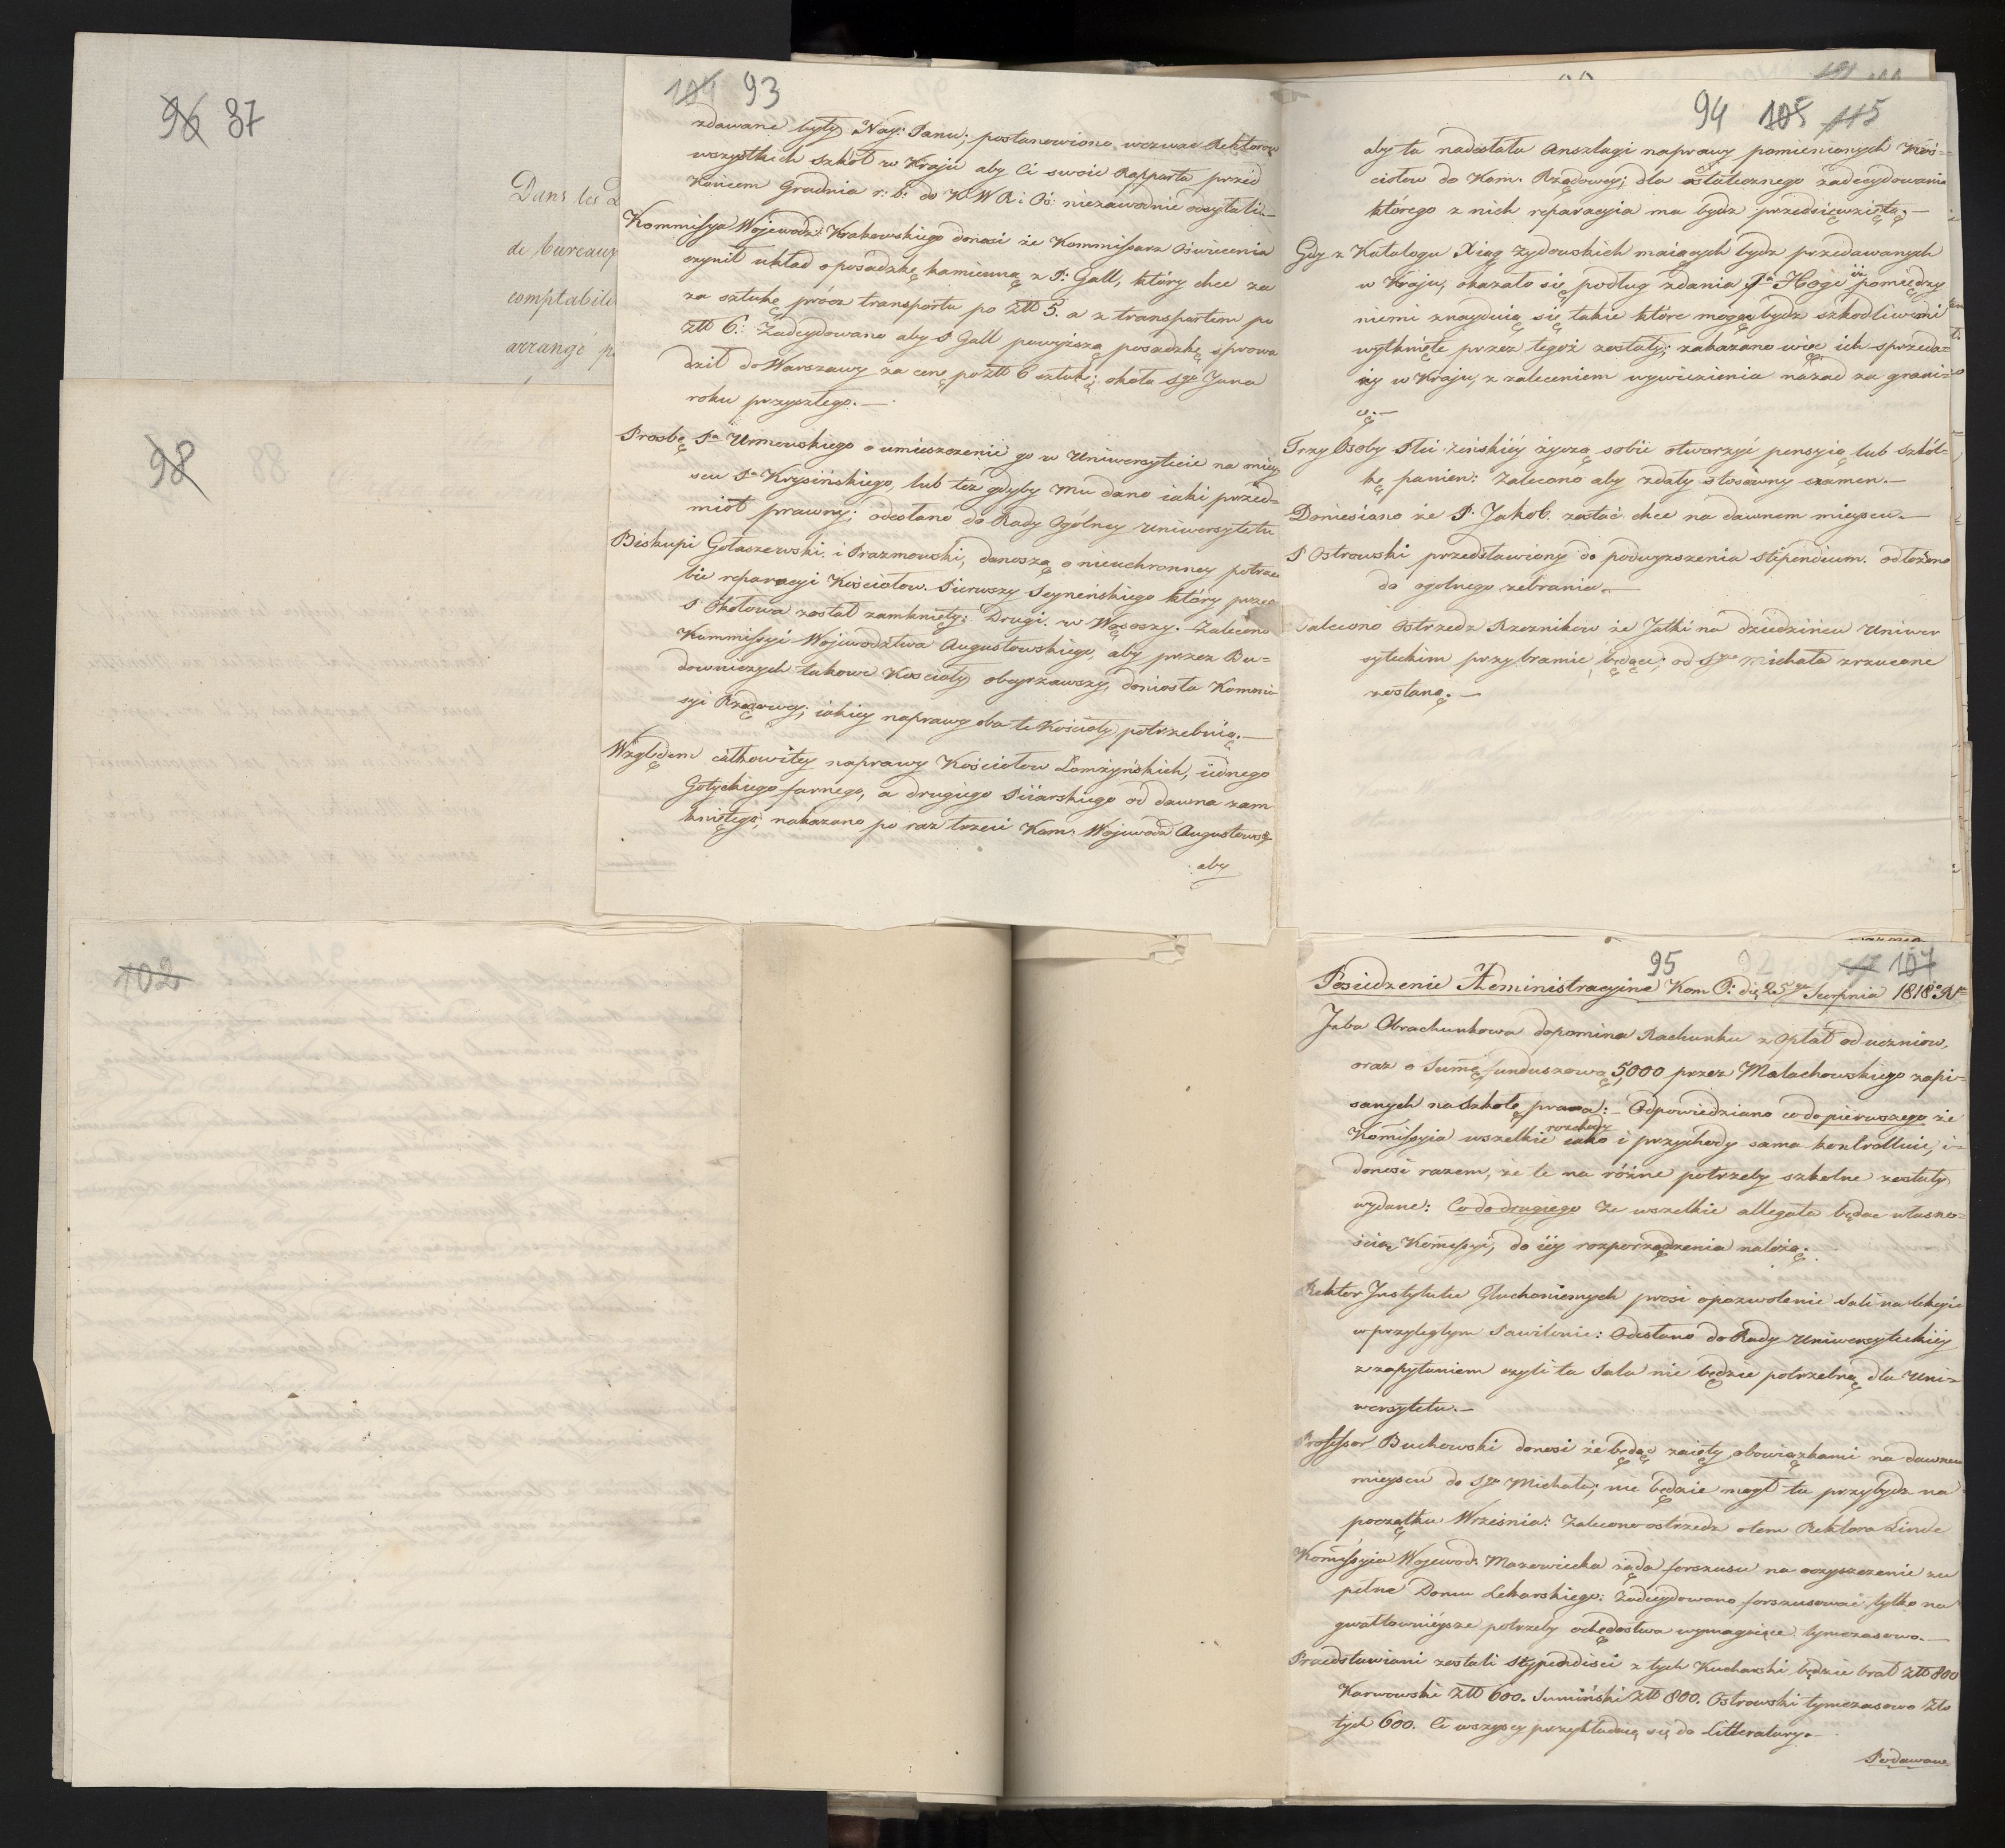 96 87
Dans les
de bureaux
comptabili
arrangé
98
88
104 93
zdawane były Nay: Panu; postanowiono wezwać Rektorow
wszystkich szkół w Kraju aby Ci swoie Rapporta przed
Końcem Grudnia r: b: do K W R i Oś: niezawodnie odsyłali.—
Kommissya Wojewodz: Krakowskiego donosi że Kommissarz Oświecenia
czynił układ o posadzkę kamienną z P. Gall, który chce za
za sztukę prócz transportu po Złł 5. a z transportem po
Złł 6.: Zadecydowano aby P Gall powyższą posadzkę sprowa
dził do Warszawy za cenę po złł 6 sztukę; około Sgo Jana
roku przyszłego.—
Prosbę Pa Urmowskiego o umieszczenie go w Uniwersytecie na miey
scu Pa Krysińskiego, lub też gdyby Mu dano iaki przed=
miot prawny; odesłano do Rady Ogólney Uniwersytetu
Biskupi Gołaszewski i Prazmowski, donoszą o nieuchronney potrze
bie reparacyi Kościołow. Pierwszy Seyneńskiego który przez
P Okołowa został zamknięty: Drugi w Wąsoszy. Zalecono
Kommissyi Wojewodztwa Augustowskiego, aby przez Bu=
downiczych takowe Kościoły obeyrzawszy, doniosła Kommis
syi Rządowey; iakiey naprawy oba te Kościoły potrzebuią.—
Względem całkowitey naprawy Kościołow Łomżyńskich, iednego
Gotyckiego farnego, a drugiego Piiarskiego od dawna zam
kniętego; nakazano po raz trzeci Kom: Wojewodz Augustows:
aby
94 105 115
aby ta nadesłała Anszlagi naprawy pomienionych Koś=
ciołow do Kom. Rządowey; dla ostatecznego zadecydowania
którego z nich reparacyia ma bydz przedsięwzięta.—
Gdy z Katalogu Xiąg Zydowskich maiących bydz przedawanych
w Kraju, okazało się podług zdania Pa Hoge iż pomiędzy
niemi znayduią się takie które mogą bydz szkodliwemi
wytknięte przez tegoż zostały; zakazano więc ich sprzeda=
ży w Kraju, z zaleceniem wywiezienia nazad za grani=
cę.—
Trzy Osoby Płci żeńskiéy życzą sobie otworzyć pensyią lub szkół=
kę panien: Zalecono aby zdały stosowny examen.—
Doniesiano że P. Jakob. zostać chce na dawnem mieyscu.—
P Ostrowski przedstawiony do podwyższenia stipendium. odłożono
do ogolnego zebrania.—
Zalecono Ostrzedz Rzeznikow że Jatki na dziedzińcu Uniwer
syteckim przy bramie będące; od Sgo Michała zrzucone
zostaną.—
102
95 107
Posiedzenie Administracyine Kom O: dię 25go Sierpnia 1818o Rku
Izba Obrachunkowa dopomina Rachunku z Opłat od uczniow,
oraz o Summę funduszową 5,000 przez Małachowskiego zapi=
sanych na szkołę prawa: Odpowiedziano co do pierwszego że
Komissyia wszelkie rozchody iako i przychody sama kontrolluie, i
donosi razem, że te na różne potrzeby szkolne zostały
wydane: Co do drugiego że wszelkie allegata będąc własno=
ścią Komissyi, do iéy rozporządzenia należą.
Rektor Instytutu Głuchoniemych prosi o pozwolenie Sali na lekcyie
w przyległym Pawilonie: Odesłano do Rady Uniwersyteckiéy
z zapytaniem czyli ta Sala nie będzie potrzebną dla Uni=
wersytetu.—
Professor Buchowski donosi że będąc zaięty obowiązkami na dawnem
mieyscu do Sgo Michała; nie będzie mogł tu przybydz na
początku Września: Zalecono ostrzedz o tem Rektora Linde
Komissyia Wojewod: Mazowiecka żąda forszusu na oczyszczenie zu
pełne Domu Lekarskiego: Zadecydowano forszusować tylko na
gwałtownieysze potrzeby ochędostwa wymagaiące tymczasowo.—
Przedstawieni zostali Stypendiści z tych Kucharski będzie brał złł 800
Karwowski Złł 600. Sumiński Złł 800. Ostrowski tymczasowo Zło
tych 600. Ci wszyscy przykładaią się do Litteratury.—
Podawane